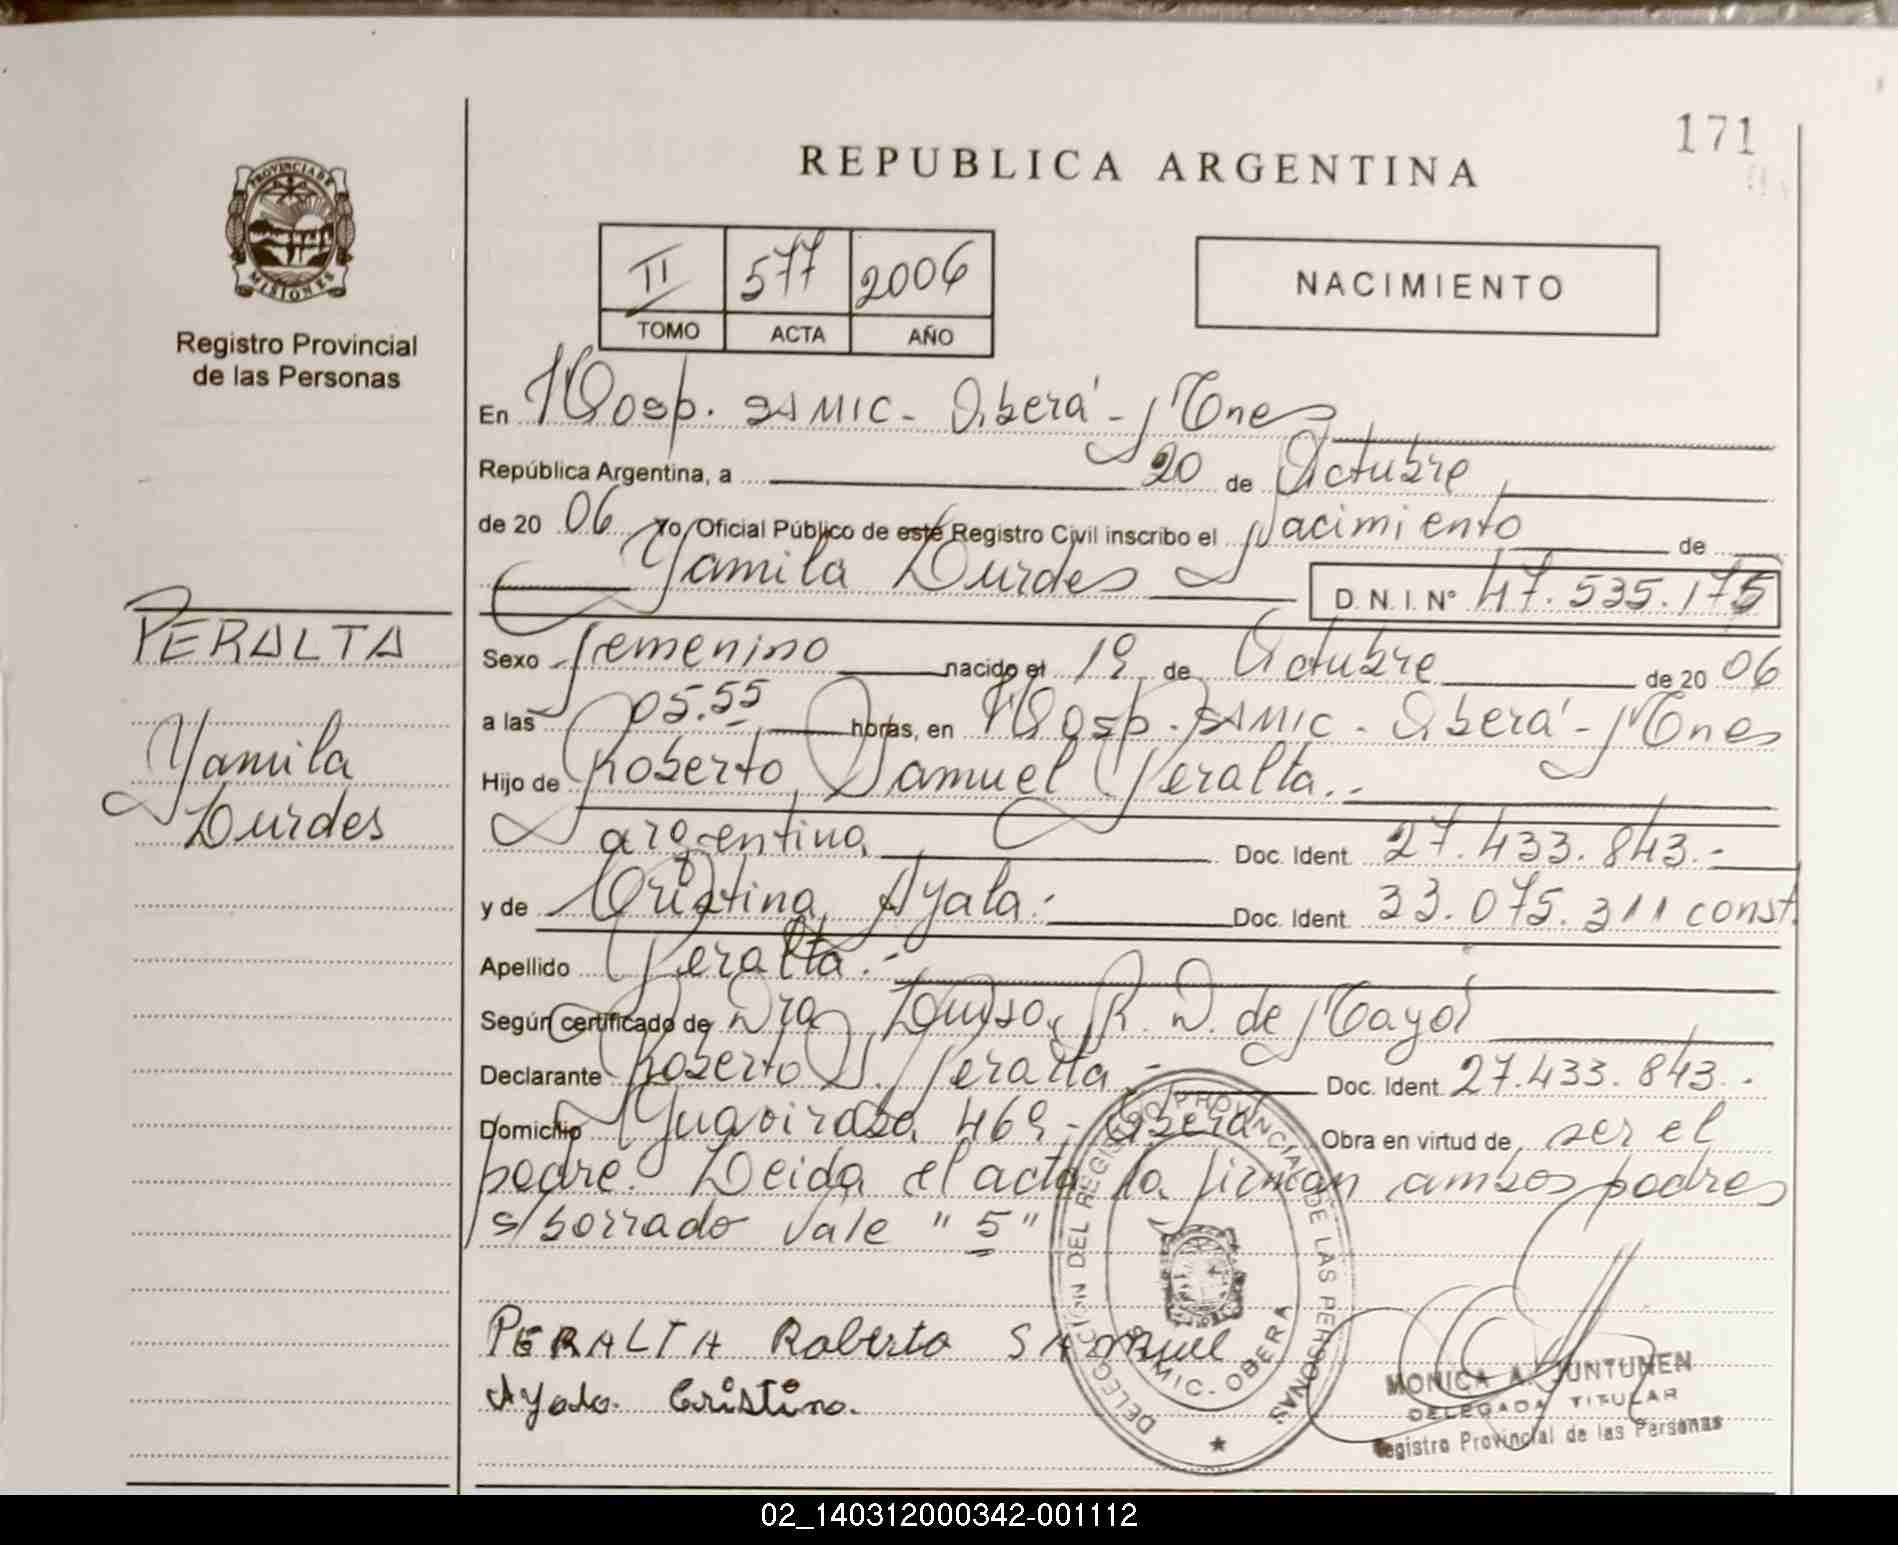 171
REPUBLICA ARGENTINA
PROVINCIA DE MISIONES
Registro Provincial
de las Personas
II 577 2006
TOMO ACTA AÑO
NACIMIENTO
En Hosp. SAMIC - Oberá - Mnes
República Argentina, a 20 de Octubre
de 20 06 Yo Oficial Público de este Registro Civil inscribo el Nacimiento de
Yamila Lurdes D. N. I. N° 47.535.175
PERALTA
Yamila
Lurdes
Sexo femenino nacido el 19 de Octubre de 20 06
a las 05.55 horas, en Hosp. SAMIC - Oberá - Mnes
Hijo de Roberto Samuel Peralta.-
argentina Doc. Ident. 27.433.843.-
y de Cristina Ayala.- Doc. Ident. 33.075.311 const.
Apellido Peralta.-
Según certificado de Dra R. D. de Mayol
Declarante Roberto S. Peralta.- Doc. Ident. 27.433.843.-
Domicilio 469 - Oberá Obra en virtud de ser el
padre. Leida el acta la firman ambos padres
s/borrado vale "5"
PERALTA Roberto SAmuel
Ayala Cristina.
DELEGACIÓN DEL REGISTRO PROVINCIAL DE LAS PERSONAS
SAMIC - OBERA
MONICA A. JUNTUNEN
DELEGADA TITULAR
Registro Provincial de las Personas
02_140312000342-001112